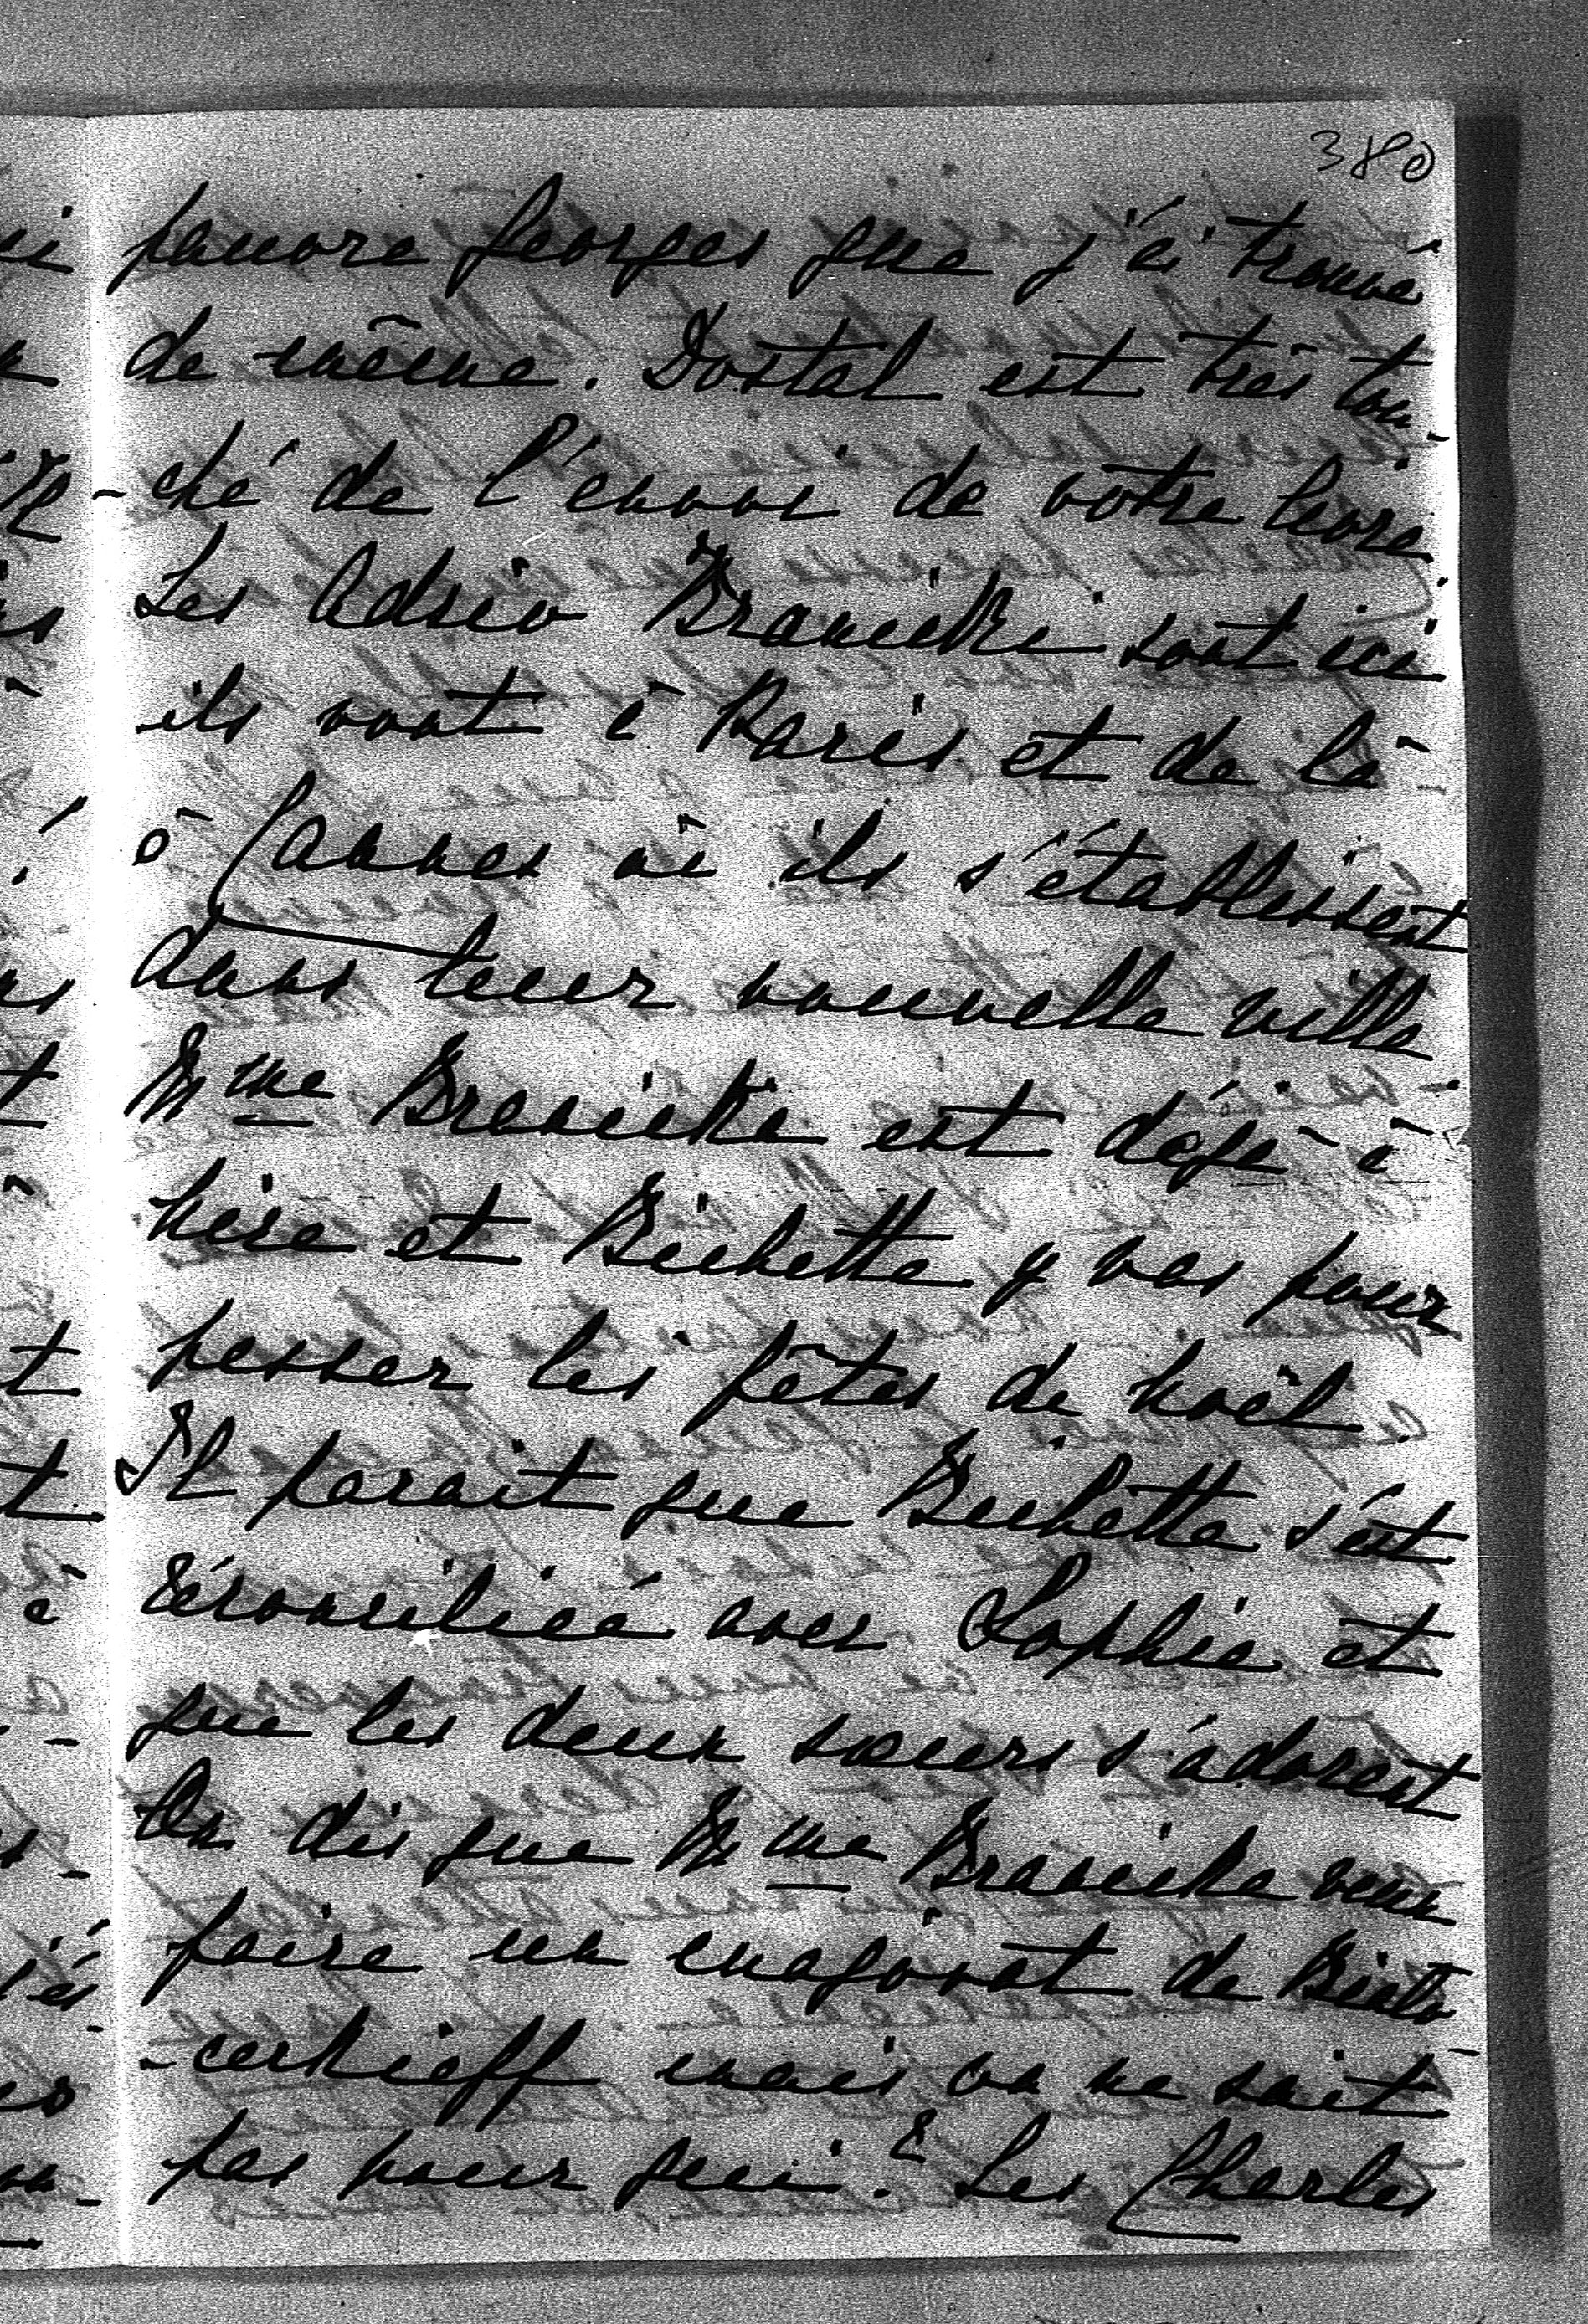 380
pauvre Georges que j'ai trouvé
de même. Dostal est très tou-
-ché de l'envoi de votre livre.
Les Adrio Branicki sont ici
ils vont à Paris et de là
à Cannes où ils s'établissent
dans leur nouvelle villa
Mme Branicka est déjà à
Nice et Bichette y vas pour
passer les fêtes de Noël.
Il parait que Bichette s'est
réconciliée avec Sophie et
que les deux sœurs s'adorent
On dis que Mme Branicka veux
faire un majorat de Biało-
-cerkieff mais on ne sait
pas pour qui. Les Charles